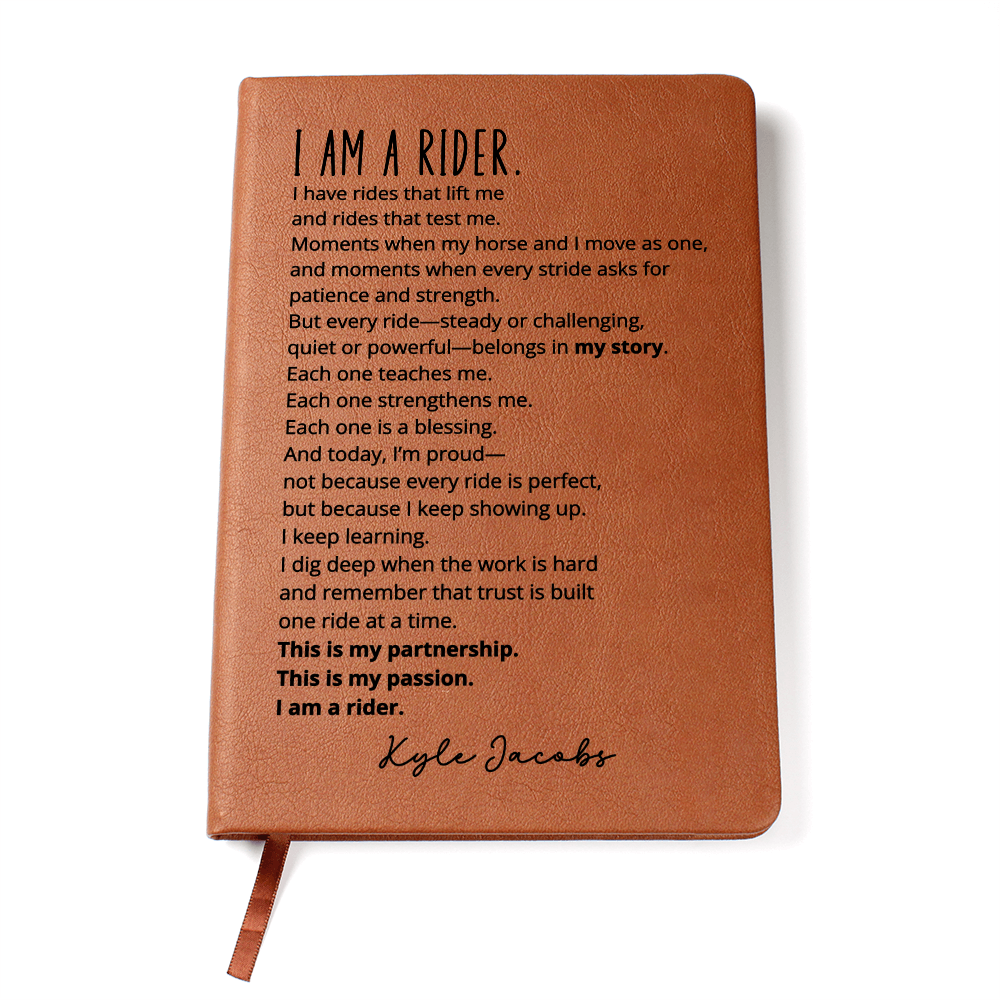 I AM A RIDER.
I have rides that lift me
and rides that test me.
Moments when my horse and I move as one,
and moments when every stride asks for
patience and strength.
But every ride—steady or challenging,
quiet or powerful—belongs in my story.
Each one teaches me.
Each one strengthens me.
Each one is a blessing.
And today, I’m proud—
not because every ride is perfect,
but because I keep showing up.
I keep learning.
I dig deep when the work is hard
and remember that trust is built
one ride at a time.
This is my partnership.
This is my passion.
I am a rider.
Kyle Jacobs